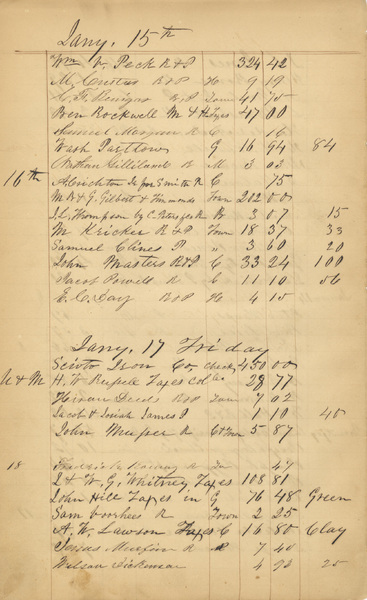 Jany. 15th
Wm V. Peck R & P 324 42
M. Custas R & P H 9 19
R & P Town 41 70
Ben Rockwell M & H Taxes 47 00
Samuel Morgan R C 16
Wash Pastlow G 16 94 84
Nathan Gilliland R M 3 03
16th A Crichton Sr per Smith R C 75
M B & J. Gilbert & Town 212 00
J. L. Thompson by C R B 3 07 15
M Kricker R & P Town 18 37 33
Samuel Clines P " 3 60 20
John Masters R & P C 33 24 100
Jacob Powell R C 11 10 56
E. C. Day R & P H 4 10
Jany. 17 Friday
Scioto Iron Co check 450 00
N & M H. W Russell Taxes Col 28 77
Hiram Deeds R & P 7 02
Jacob & Josiah James P 1 10 40
John R 5 87
18 Fredrick R 47
W. G. Whitney Taxes 108 81
John Hill Taxes in G 76 48 Green
Sam Voorhes R Town 2 25
A. W. Lawson Taxes C 16 80 Clay
R 7 40
Wilson 4 92 25